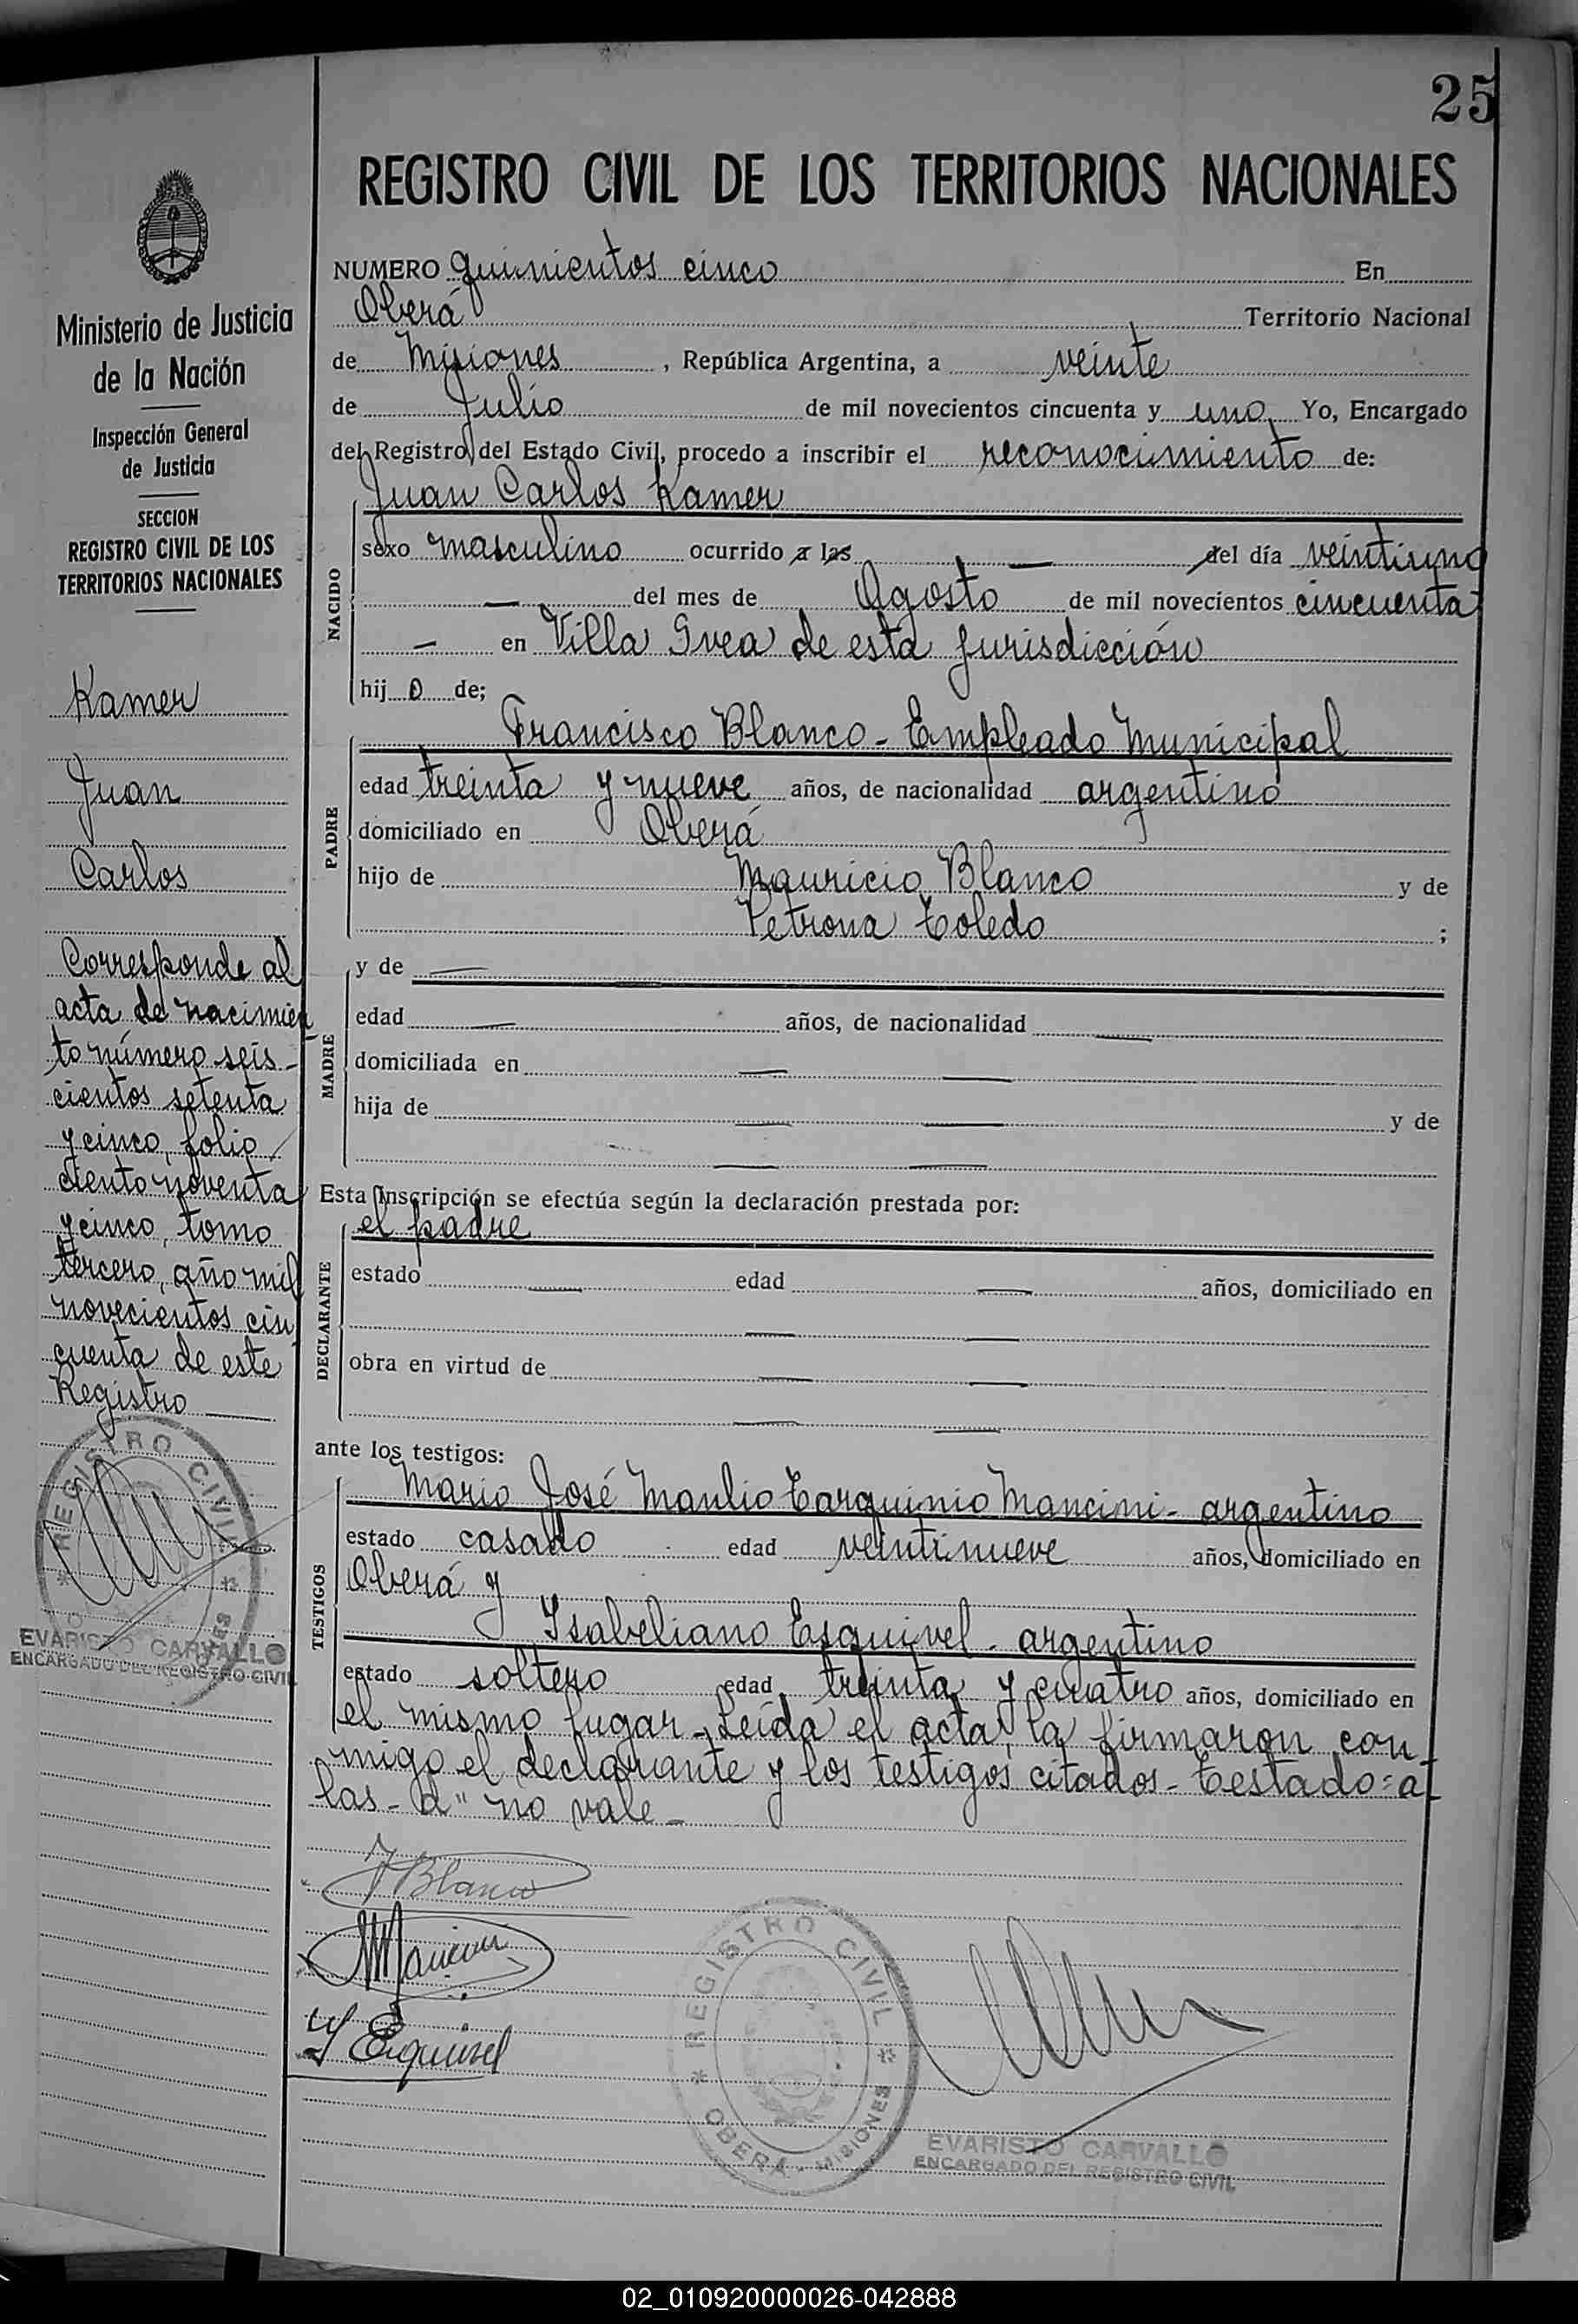 25
REGISTRO CIVIL DE LOS TERRITORIOS NACIONALES
Ministerio de Justicia
de la Nación
Inspección General
de Justicia
SECCION
REGISTRO CIVIL DE LOS
TERRITORIOS NACIONALES
Kamer
Juan
Carlos
Corresponde al
acta de nacimien
to número seis-
cientos setenta
y cinco, folio
ciento noventa
y cinco, tomo
tercero, año mil
novecientos cin
cuenta de este
Registro
REGISTRO CIVIL
EVARISTO CARVALLO
ENCARGADO DEL REGISTRO CIVIL
NUMERO quinientos cinco En
Oberá Territorio Nacional
de Misiones, República Argentina, a veinte
de Julio de mil novecientos cincuenta y uno, Yo, Encargado
del Registro del Estado Civil, procedo a inscribir el reconocimiento de:
Juan Carlos Kamer
NACIDO
sexo masculino ocurrido a las — del día veintiuno
— del mes de Agosto de mil novecientos cincuenta
— en Villa Svea de esta jurisdicción
hijo de;
Francisco Blanco - Empleado Municipal
PADRE
edad treinta y nueve años, de nacionalidad argentino
domiciliado en Oberá
hijo de Mauricio Blanco y de
Petrona Toledo ;
MADRE
y de —
edad — años, de nacionalidad —
domiciliada en — —
hija de — — y de
— —
Esta Inscripción se efectúa según la declaración prestada por:
el padre
DECLARANTE
estado — edad — años, domiciliado en
— —
obra en virtud de — —
— —
ante los testigos:
Mario José Manlio Tarquinio Mancini - argentino
TESTIGOS
estado casado edad veintinueve años, domiciliado en
Oberá y
Ysabeliano Esquivel - argentino
estado soltero edad treinta y cuatro años, domiciliado en
el mismo lugar - Leída el acta, la firmaron con-
migo el declarante y los testigos citados - Testado: a-
las - d" no vale -
F Blanco
MMancini
Y Esquivel
REGISTRO CIVIL
OBERA - MISIONES
EVARISTO CARVALLO
ENCARGADO DEL REGISTRO CIVIL
02_010920000026-042888